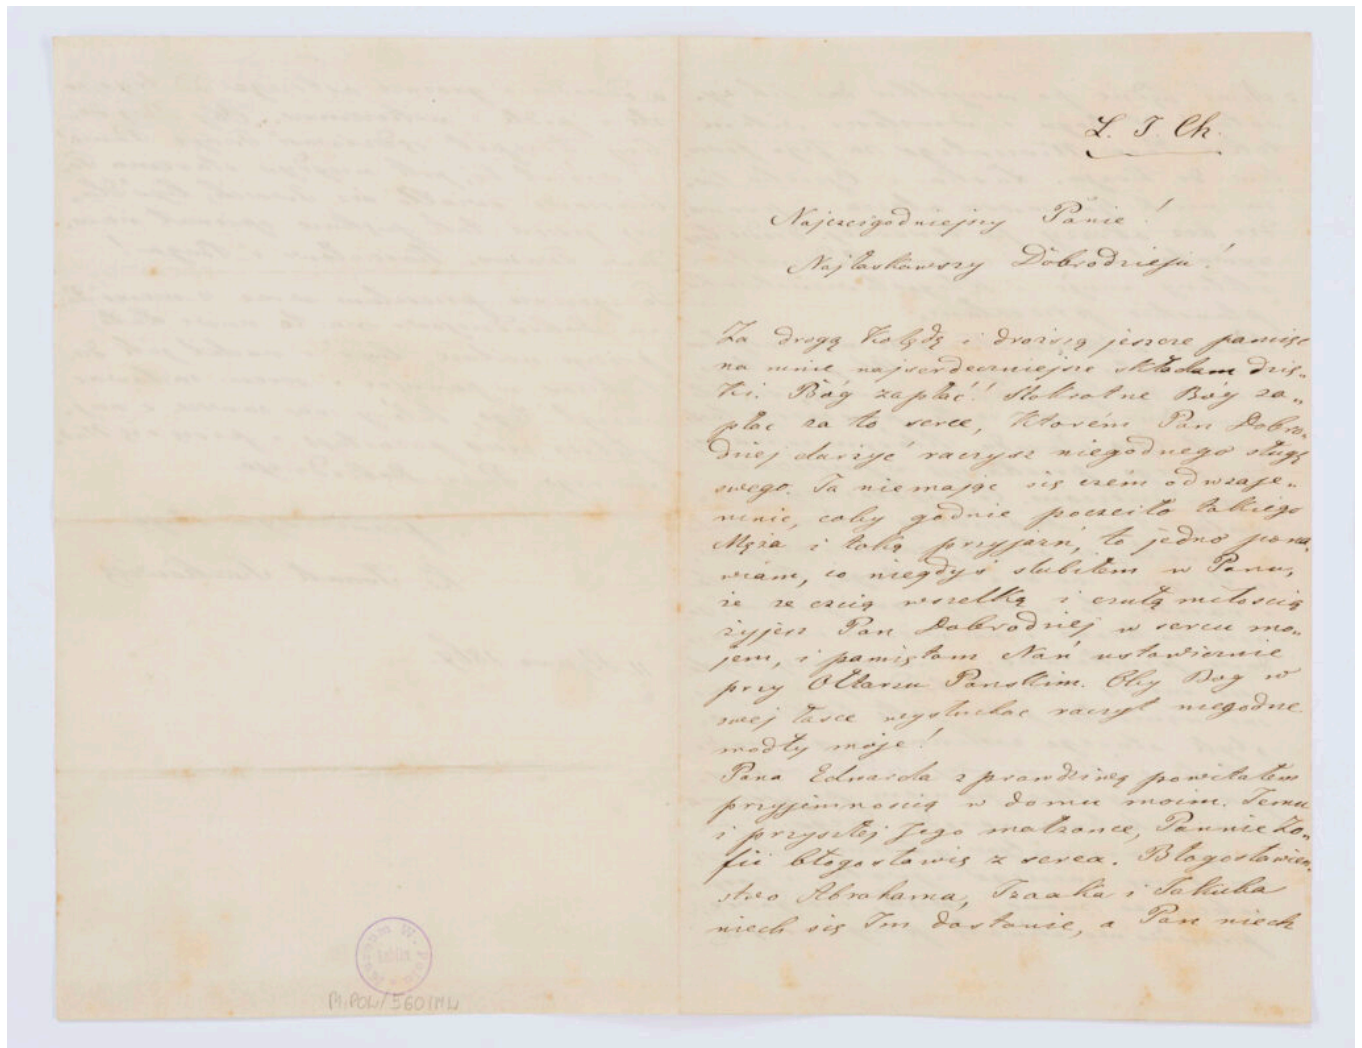 L. J. Ch.
Najczcigodniejszy Panie!
Najłaskawszy Dobrodzieju!
Za drogą kolędę i droższą jeszcze pamięć
na mnie najserdeczniejsze składam dzię„
ki. Bóg zapłać! Stokrotne Bóg za„
płać za to serce, którém Pan Dobro„
dziej darzyć raczysz niegodnego sługę
swego. Ja nie mając się czém odwzaje„
mnić, coby godnie poczciło takiego
Męża i taką przyjaźń, to jedno pona„
wiam, co niegdyś slubiłem w Panu,
że ze czcią wszelką i czułą miłością
żyjesz Pan Dobrodziej w sercu mo„
jem, i pamiętam Nań ustawicznie
przy Ołtarzu Pańskim. Oby Bóg w
swej łasce wysłuchać raczył niegodne
modły moje!
Pana Edwarda z prawdziwą powitałem
przyjemnością w domu moim. Jemu
i przyszłej Jego małżonce, Pannie Zo„
fii błogosławię z serca. Błogosławień„
stwo Abrahama, Izaaka i Jakuba
niech się Im dostanie, a Pan niech
M.POW/560/ML